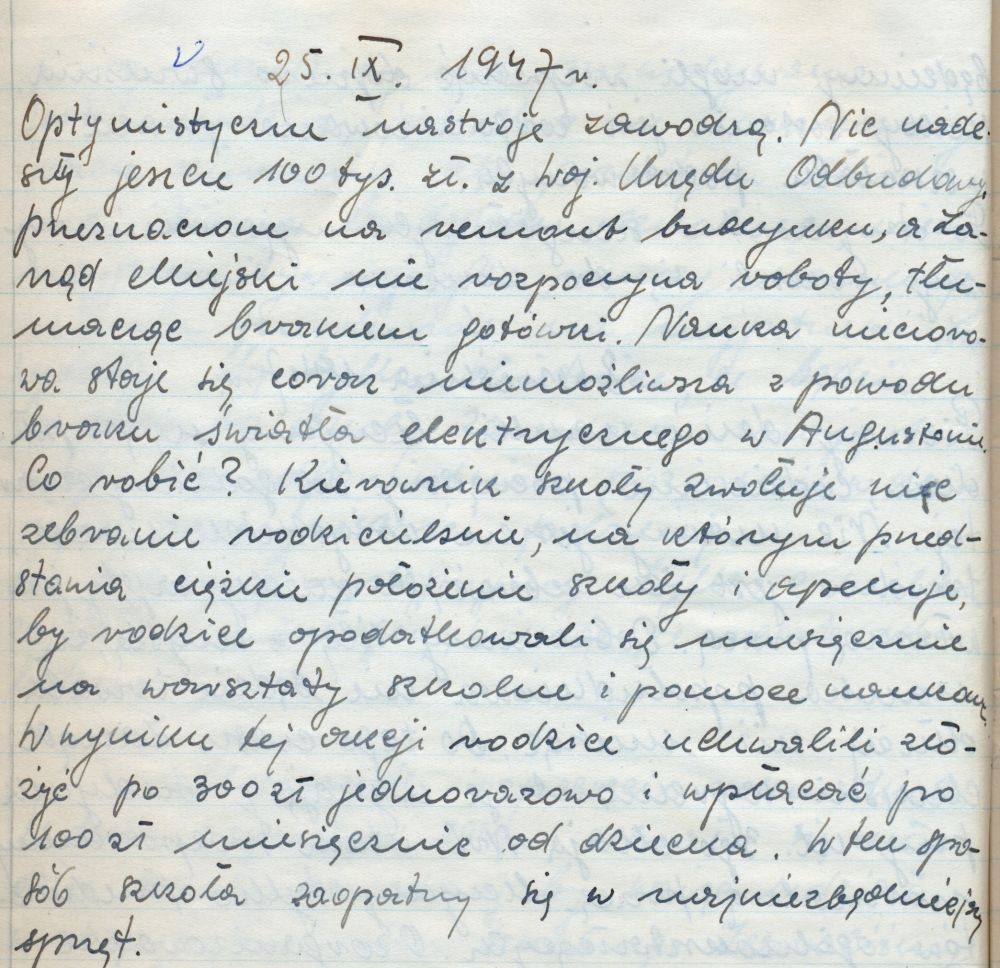 25. IX. 1947 r.
Optymistyczne nastroje zawodzą. Nie nade-
szły jeszcze 100 tys. zł. z Woj. Urzędu Odbudowy,
przeznaczone na remont budynku, a Za-
rząd Miejski nie rozpoczyna roboty, tłu-
macząc brakiem gotówki. Nauka wieczoro-
wa staje się coraz niemożliwsza z powodu
braku światła elektrycznego w Augustowie.
Co robić? Kierownik szkoły zwołuje więc
zebranie rodzicielskie, na którym przed-
stawia ciężkie położenie szkoły i apeluje,
by rodzice opodatkowali się miesięcznie
na warsztaty szkolne i pomoce naukowe.
W wyniku tej akcji rodzice uchwalili zło-
żyć po 300 zł jednorazowo i wpłacać po
100 zł miesięcznie od dziecka. W ten spo-
sób szkoła zaopatrzy się w najniezbędniejszy
sprzęt.